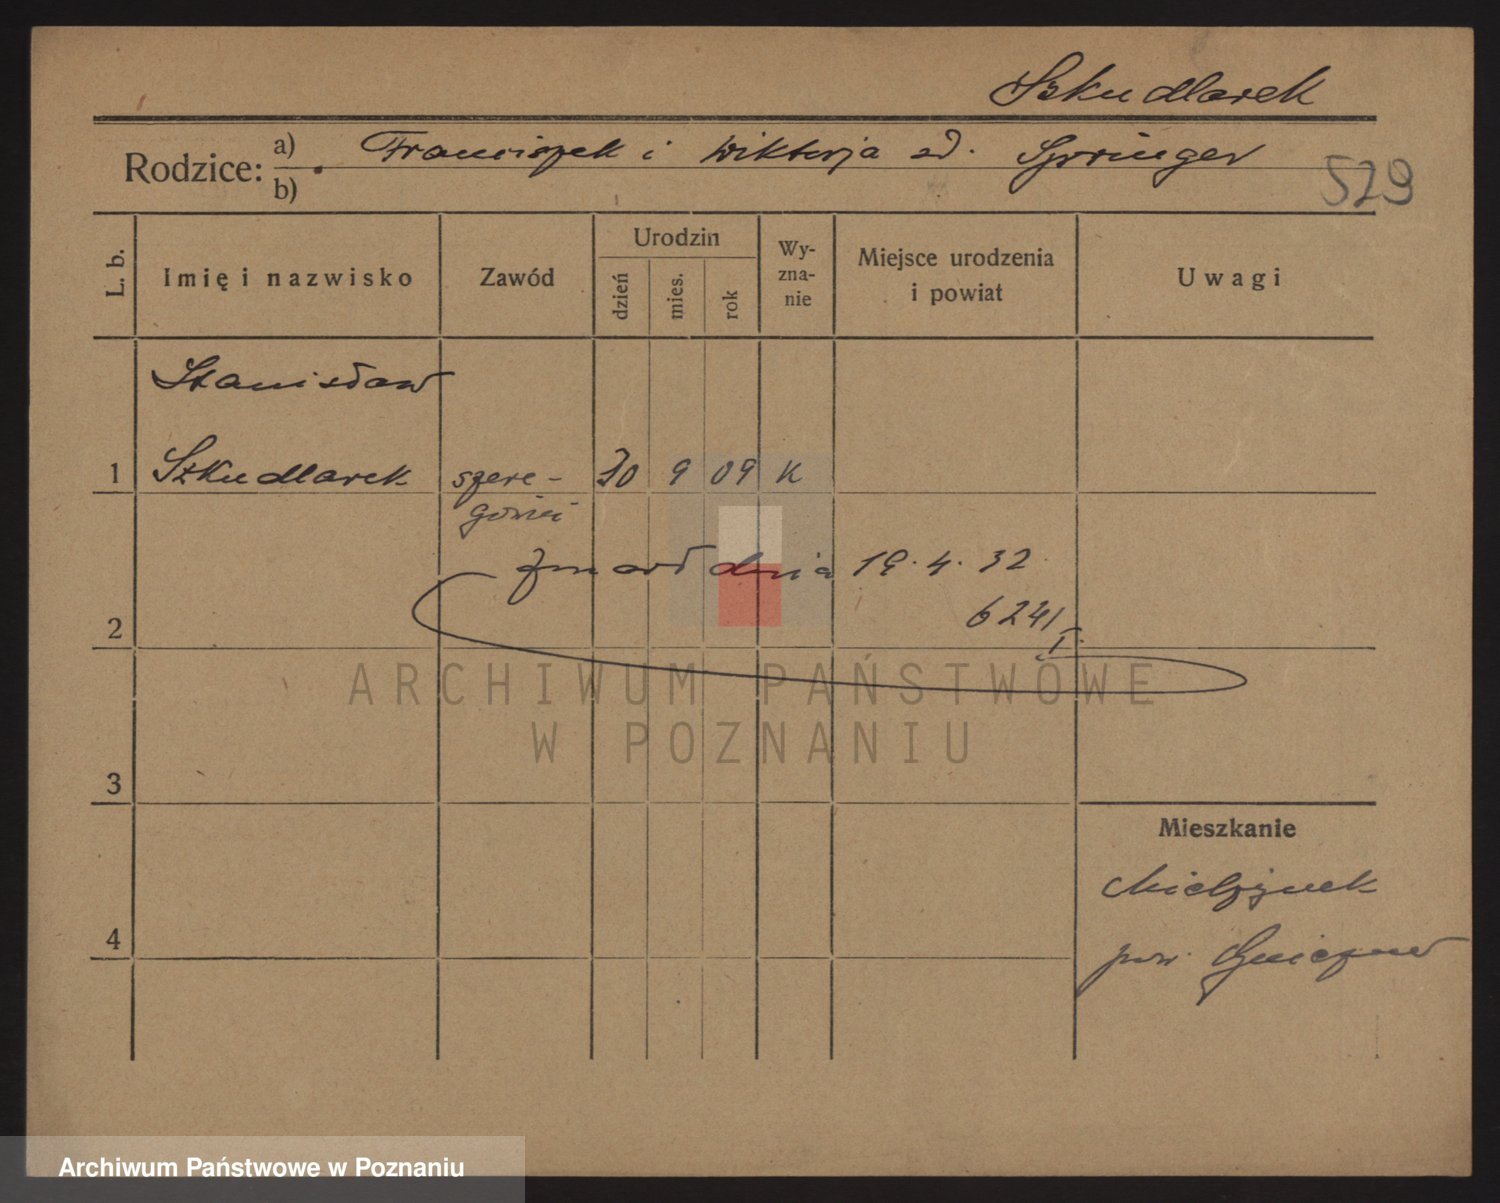 Szkudlarek
Rodzice: a) Franciszek i Wiktorja zd. Springer
b)
529
L. b.
Imię i nazwisko
Zawód
Urodzin
dzień
mies.
rok
Wy-
zna-
nie
Miejsce urodzenia
i powiat
Uwagi
Stanisław
1 Szkudlarek szere- 30 9 09 K
gowiec
zmarł dnia 19.4.32
624/I.
2
ARCHIWUM PAŃSTWOWE
W POZNANIU
3
Mieszkanie
Mielżynek
4
pow. Gniezno
Archiwum Państwowe w Poznaniu